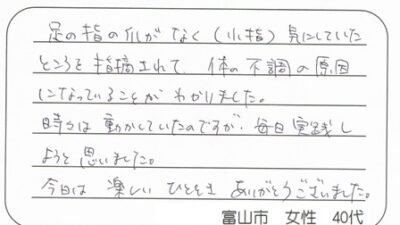 足の指の爪がなく（小指）気にしていた
ところを指摘されて、体の不調の原因
になっていることがわかりました。
時々は動かしていたのですが、毎日実践し
ようと思いました。
今日は楽しいひとときありがとうございました。
富山市 女性 40代